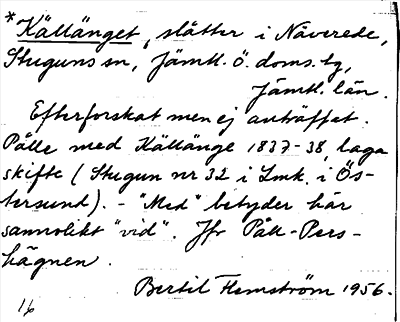 *Källänget, slåtter i Näverede,
Stuguns sn, Jämtl. ö. doms. tg,
Jämtl. län.
Efterforskat men ej anträffat.
Pålle med Källänge 1837-38, laga
skifte (Stugun nr 32 i Lmk. i Ös-
tersund). - "Med" betyder här
sannolikt "vid". Jfr Påll-Pers-
hägnen.
Bertil Flemström 1956.
16